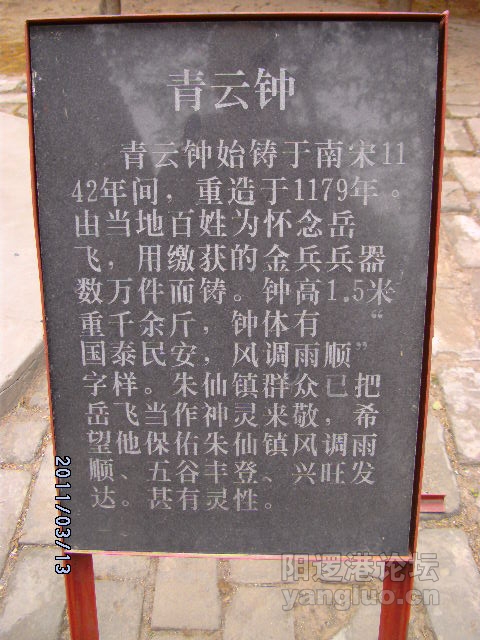 青云钟
青云钟始铸于南宋11
42年间，重造于1179年。
由当地百姓为怀念岳
飞，用缴获的金兵兵器
数万件而铸。钟高1.5米
重千余斤，钟体有“
国泰民安，风调雨顺”
字样。朱仙镇群众已把
岳飞当作神灵来敬，希
望他保佑朱仙镇风调雨
顺、五谷丰登、兴旺发
达。甚有灵性。
2011/03/13
阳逻港论坛
yangluo.cn